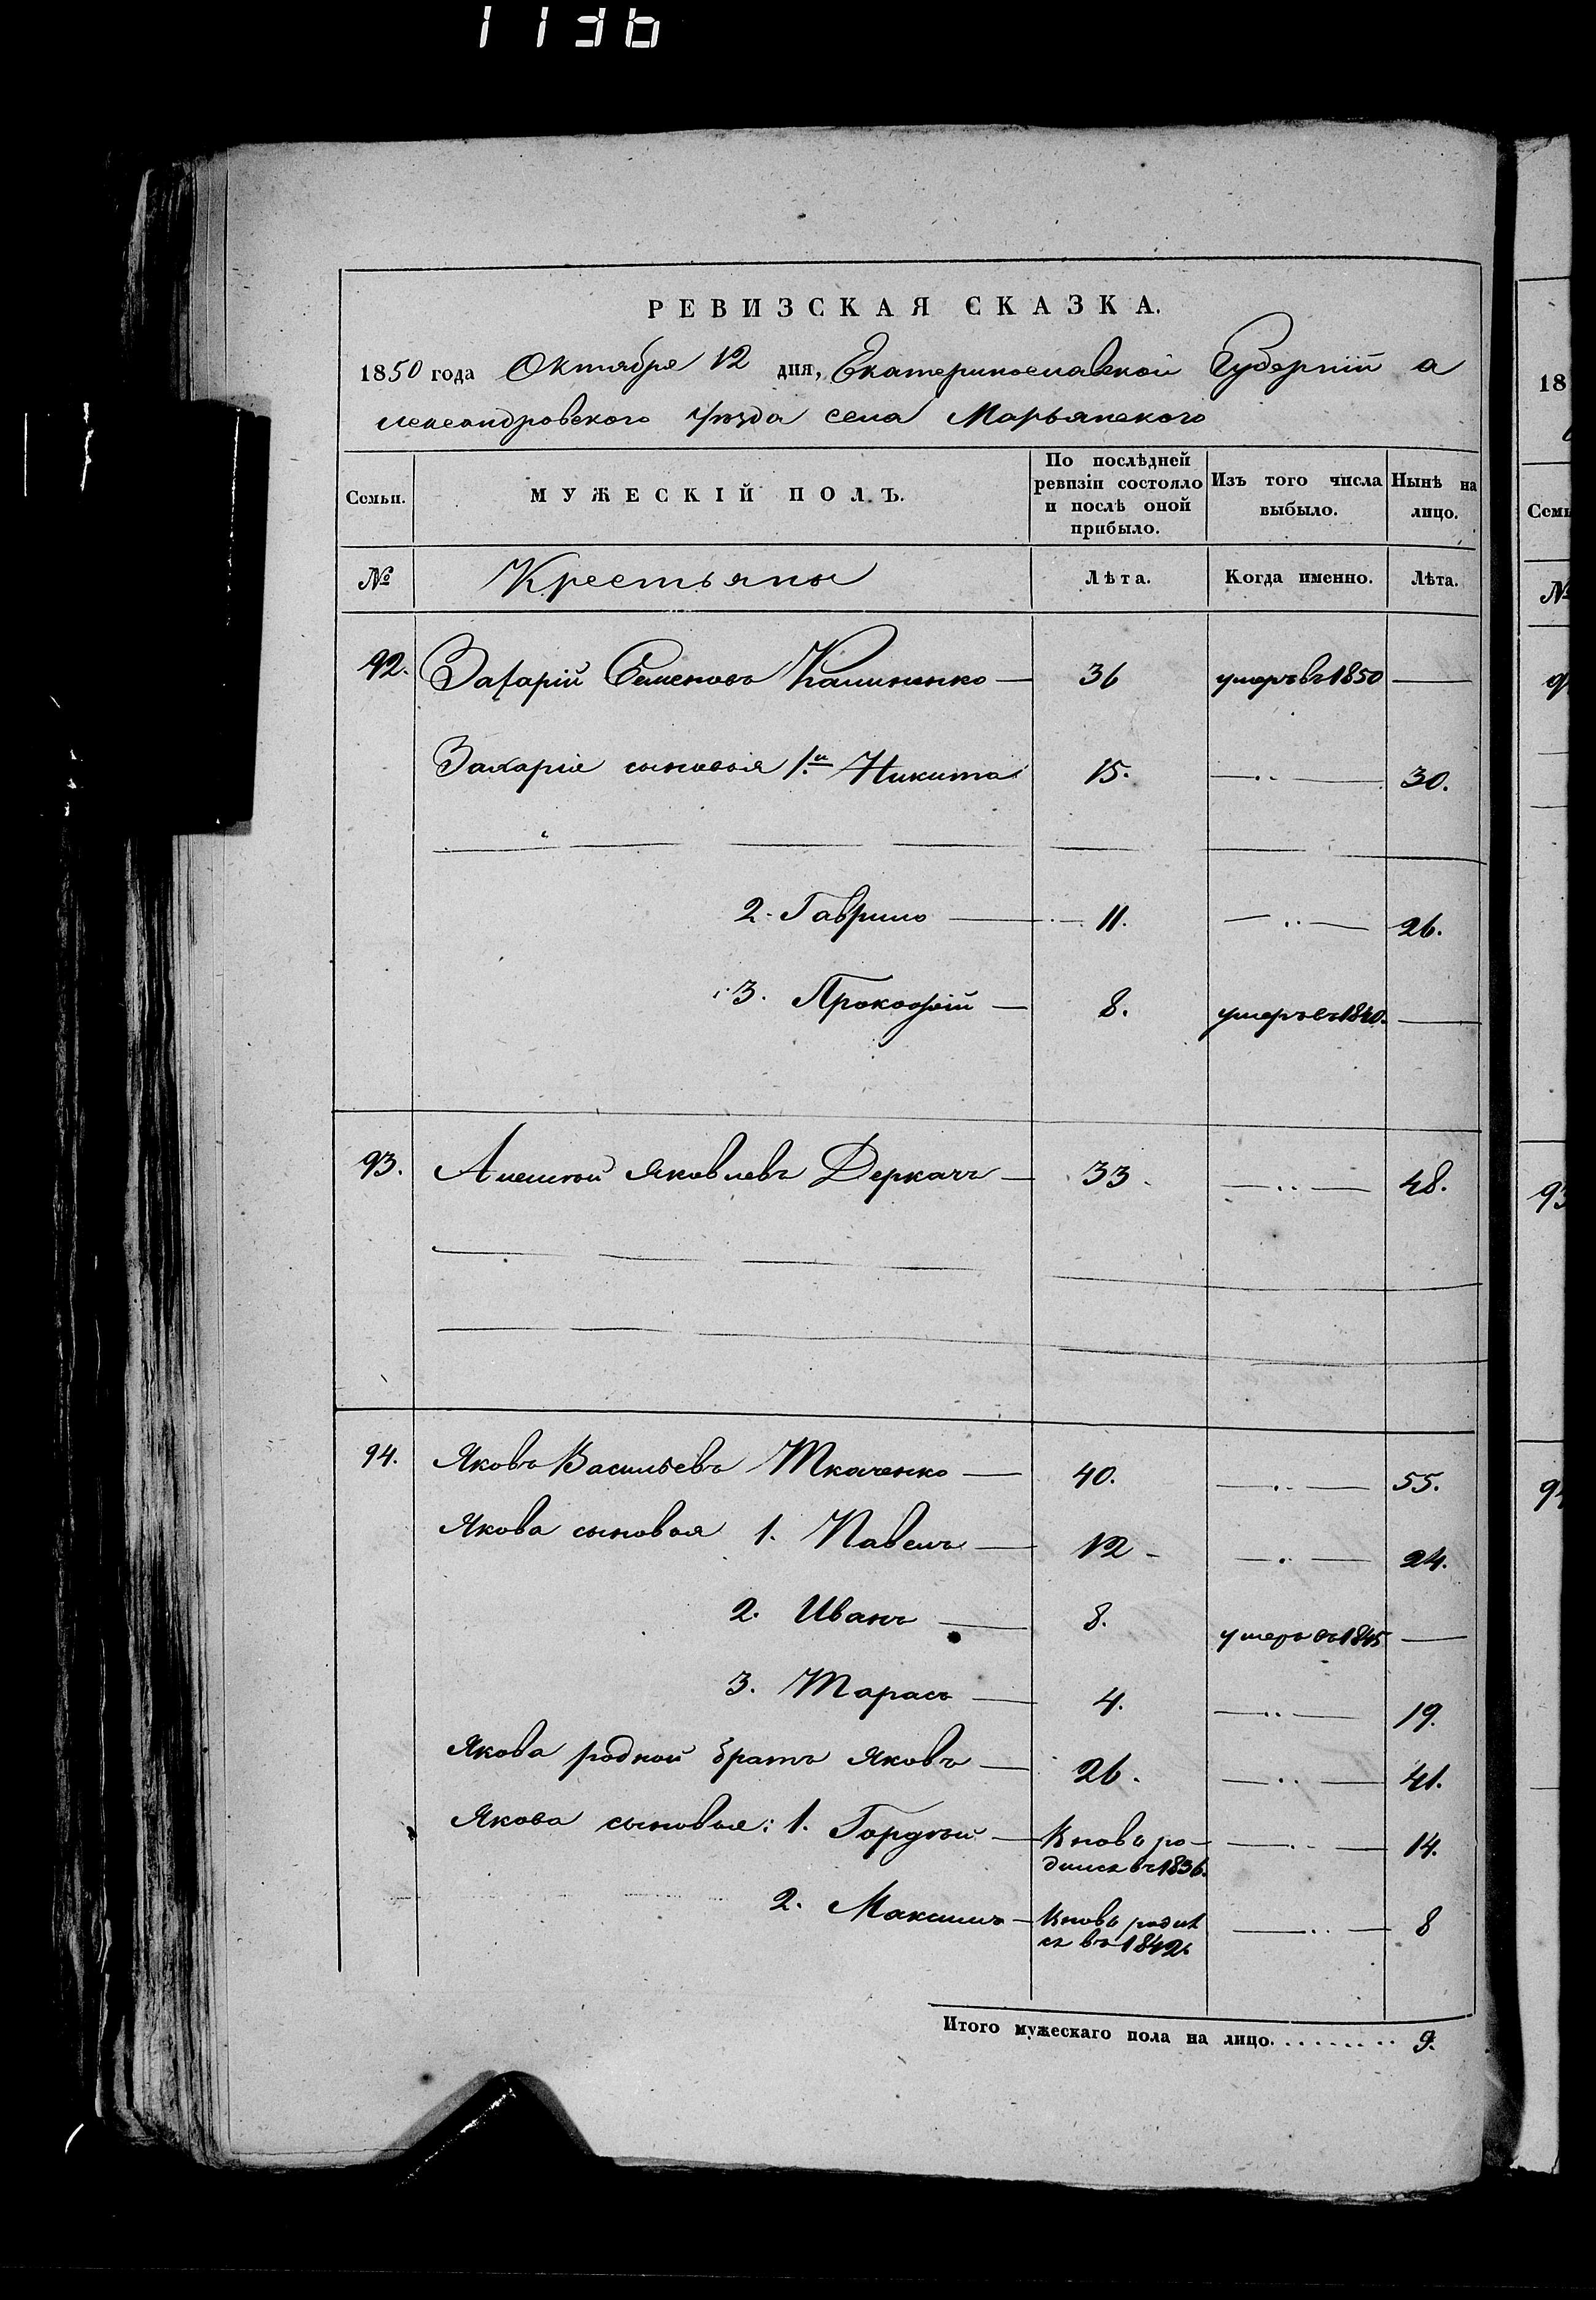 1136
РЕВИЗСКАЯ СКАЗКА.
1850 года Октября 12 дня, Екатеринославской Губернiй а
лександровского уѣзда села Марьянского
Семьи.
МУЖЕСКІЙ ПОЛЪ.
По послѣдней ревизіи состояло и послѣ оной прибыло.
Изъ того числа выбыло.
Нынѣ на лицо.
№ Крестьяны Лѣта. Когда именно. Лѣта.
92. Захарій Семеновъ Калиненко — 36 умеръ въ 1850 —
Захарія сыновья 1.й Никита 15. — 30.
2. Гаврило — 11. — 26.
3. Прокофій — 8. умеръ въ 1840. —
93. Алексѣй Яковлевъ Деркачъ — 33 — 48.
94. Яковъ Васильевъ Ткаченко — 40. — 55.
Якова сыновья 1. Павелъ — 12 — 24.
2. Иванъ — 8. умеръ въ 1845 —
3. Тарасъ — 4. — 19.
Якова родной братъ Яковъ — 26. — 41.
Якова сыновья: 1. Гордѣй — Вновь ро-
дился въ 1836. — 14.
2. Максимъ — Вновь родил
ся въ 1842 — 8
Итого мужескаго пола на лицо. . . . . . . . . 9.
18
Семь
№
93
94